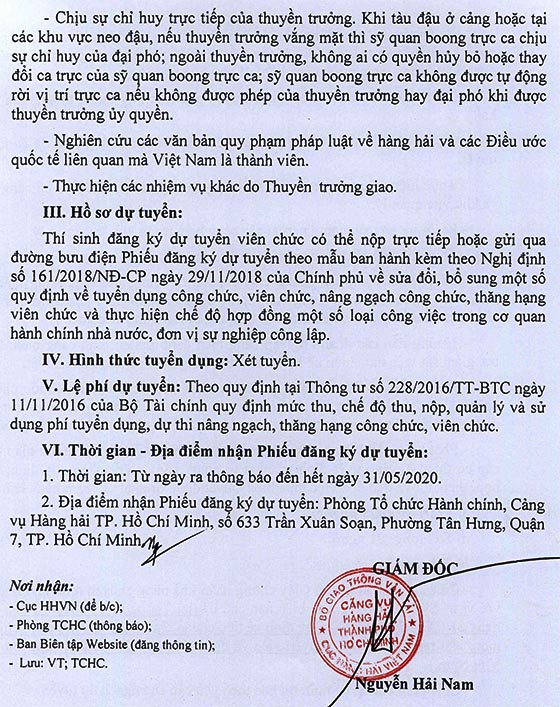 - Chịu sự chỉ huy trực tiếp của thuyền trưởng. Khi tàu đậu ở cảng hoặc tại
các khu vực neo đậu, nếu thuyền trưởng vắng mặt thì sỹ quan boong trực ca chịu
sự chỉ huy của đại phó; ngoài thuyền trưởng, không ai có quyền hủy bỏ hoặc thay
đổi ca trực của sỹ quan boong trực ca; sỹ quan boong trực ca không được tự động
rời vị trí trực ca nếu không được phép của thuyền trưởng hay đại phó khi được
thuyền trưởng ủy quyền.
- Nghiên cứu các văn bản quy phạm pháp luật về hàng hải và các Điều ước
quốc tế liên quan mà Việt Nam là thành viên.
- Thực hiện các nhiệm vụ khác do Thuyền trưởng giao.
III. Hồ sơ dự tuyển:
Thí sinh đăng ký dự tuyển viên chức có thể nộp trực tiếp hoặc gửi qua
đường bưu điện Phiếu đăng ký dự tuyển theo mẫu ban hành kèm theo Nghị định
số 161/2018/NĐ-CP ngày 29/11/2018 của Chính phủ về sửa đổi, bổ sung một số
quy định về tuyển dụng công chức, viên chức, nâng ngạch công chức, thăng hạng
viên chức và thực hiện chế độ hợp đồng một số loại công việc trong cơ quan
hành chính nhà nước, đơn vị sự nghiệp công lập.
IV. Hình thức tuyển dụng: Xét tuyển.
V. Lệ phí dự tuyển: Theo quy định tại Thông tư số 228/2016/TT-BTC ngày
11/11/2016 của Bộ Tài chính quy định mức thu, chế độ thu, nộp, quản lý và sử
dụng phí tuyển dụng, dự thi nâng ngạch, thăng hạng công chức, viên chức.
VI. Thời gian - Địa điểm nhận Phiếu đăng ký dự tuyển:
1. Thời gian: Từ ngày ra thông báo đến hết ngày 31/05/2020.
2. Địa điểm nhận Phiếu đăng ký dự tuyển: Phòng Tổ chức Hành chính, Cảng
vụ Hàng hải TP. Hồ Chí Minh, số 633 Trần Xuân Soạn, Phường Tân Hưng, Quận
7, TP. Hồ Chí Minh.
GIÁM ĐỐC
Nơi nhận:
- Cục HHVN (để b/c);
- Phòng TCHC (thông báo);
- Ban Biên tập Website (đăng thông tin);
- Lưu: VT; TCHC.
BỘ GIAO THÔNG VẬN TẢI
CẢNG VỤ
HÀNG HẢI
THÀNH PHỐ
HỒ CHÍ MINH
CỤC HÀNG HẢI VIỆT NAM
Nguyễn Hải Nam